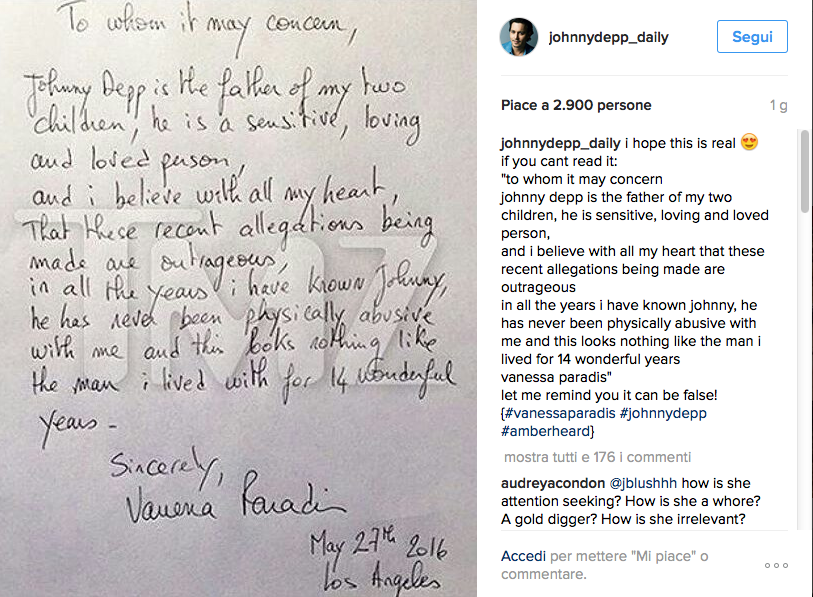 To whom it may concern,
Johnny Depp is the father of my two
children, he is a sensitive, loving
and loved person,
and i believe with all my heart,
That these recent allegations being
made are outrageous,
in all the years i have known Johnny,
he has never been physically abusive
with me and this looks nothing like
the man i lived with for 14 wonderful
years -
Sincerely,
Vanessa Paradis
May 27th 2016
Los Angeles
TMZ
johnnydepp_daily
Segui
Piace a 2.900 persone
1 g
johnnydepp_daily i hope this is real 😍
if you cant read it:
"to whom it may concern
johnny depp is the father of my two
children, he is sensitive, loving and loved
person,
and i believe with all my heart that these
recent allegations being made are
outrageous
in all the years i have known johnny, he
has never been physically abusive with
me and this looks nothing like the man i
lived for 14 wonderful years
vanessa paradis"
let me remind you it can be false!
{#vanessaparadis #johnnydepp
#amberheard}
mostra tutti e 176 i commenti
audreyacondon @jblushhh how is she
attention seeking? How is she a whore?
A gold digger? How is she irrelevant?
Accedi per mettere "Mi piace" o
commentare.